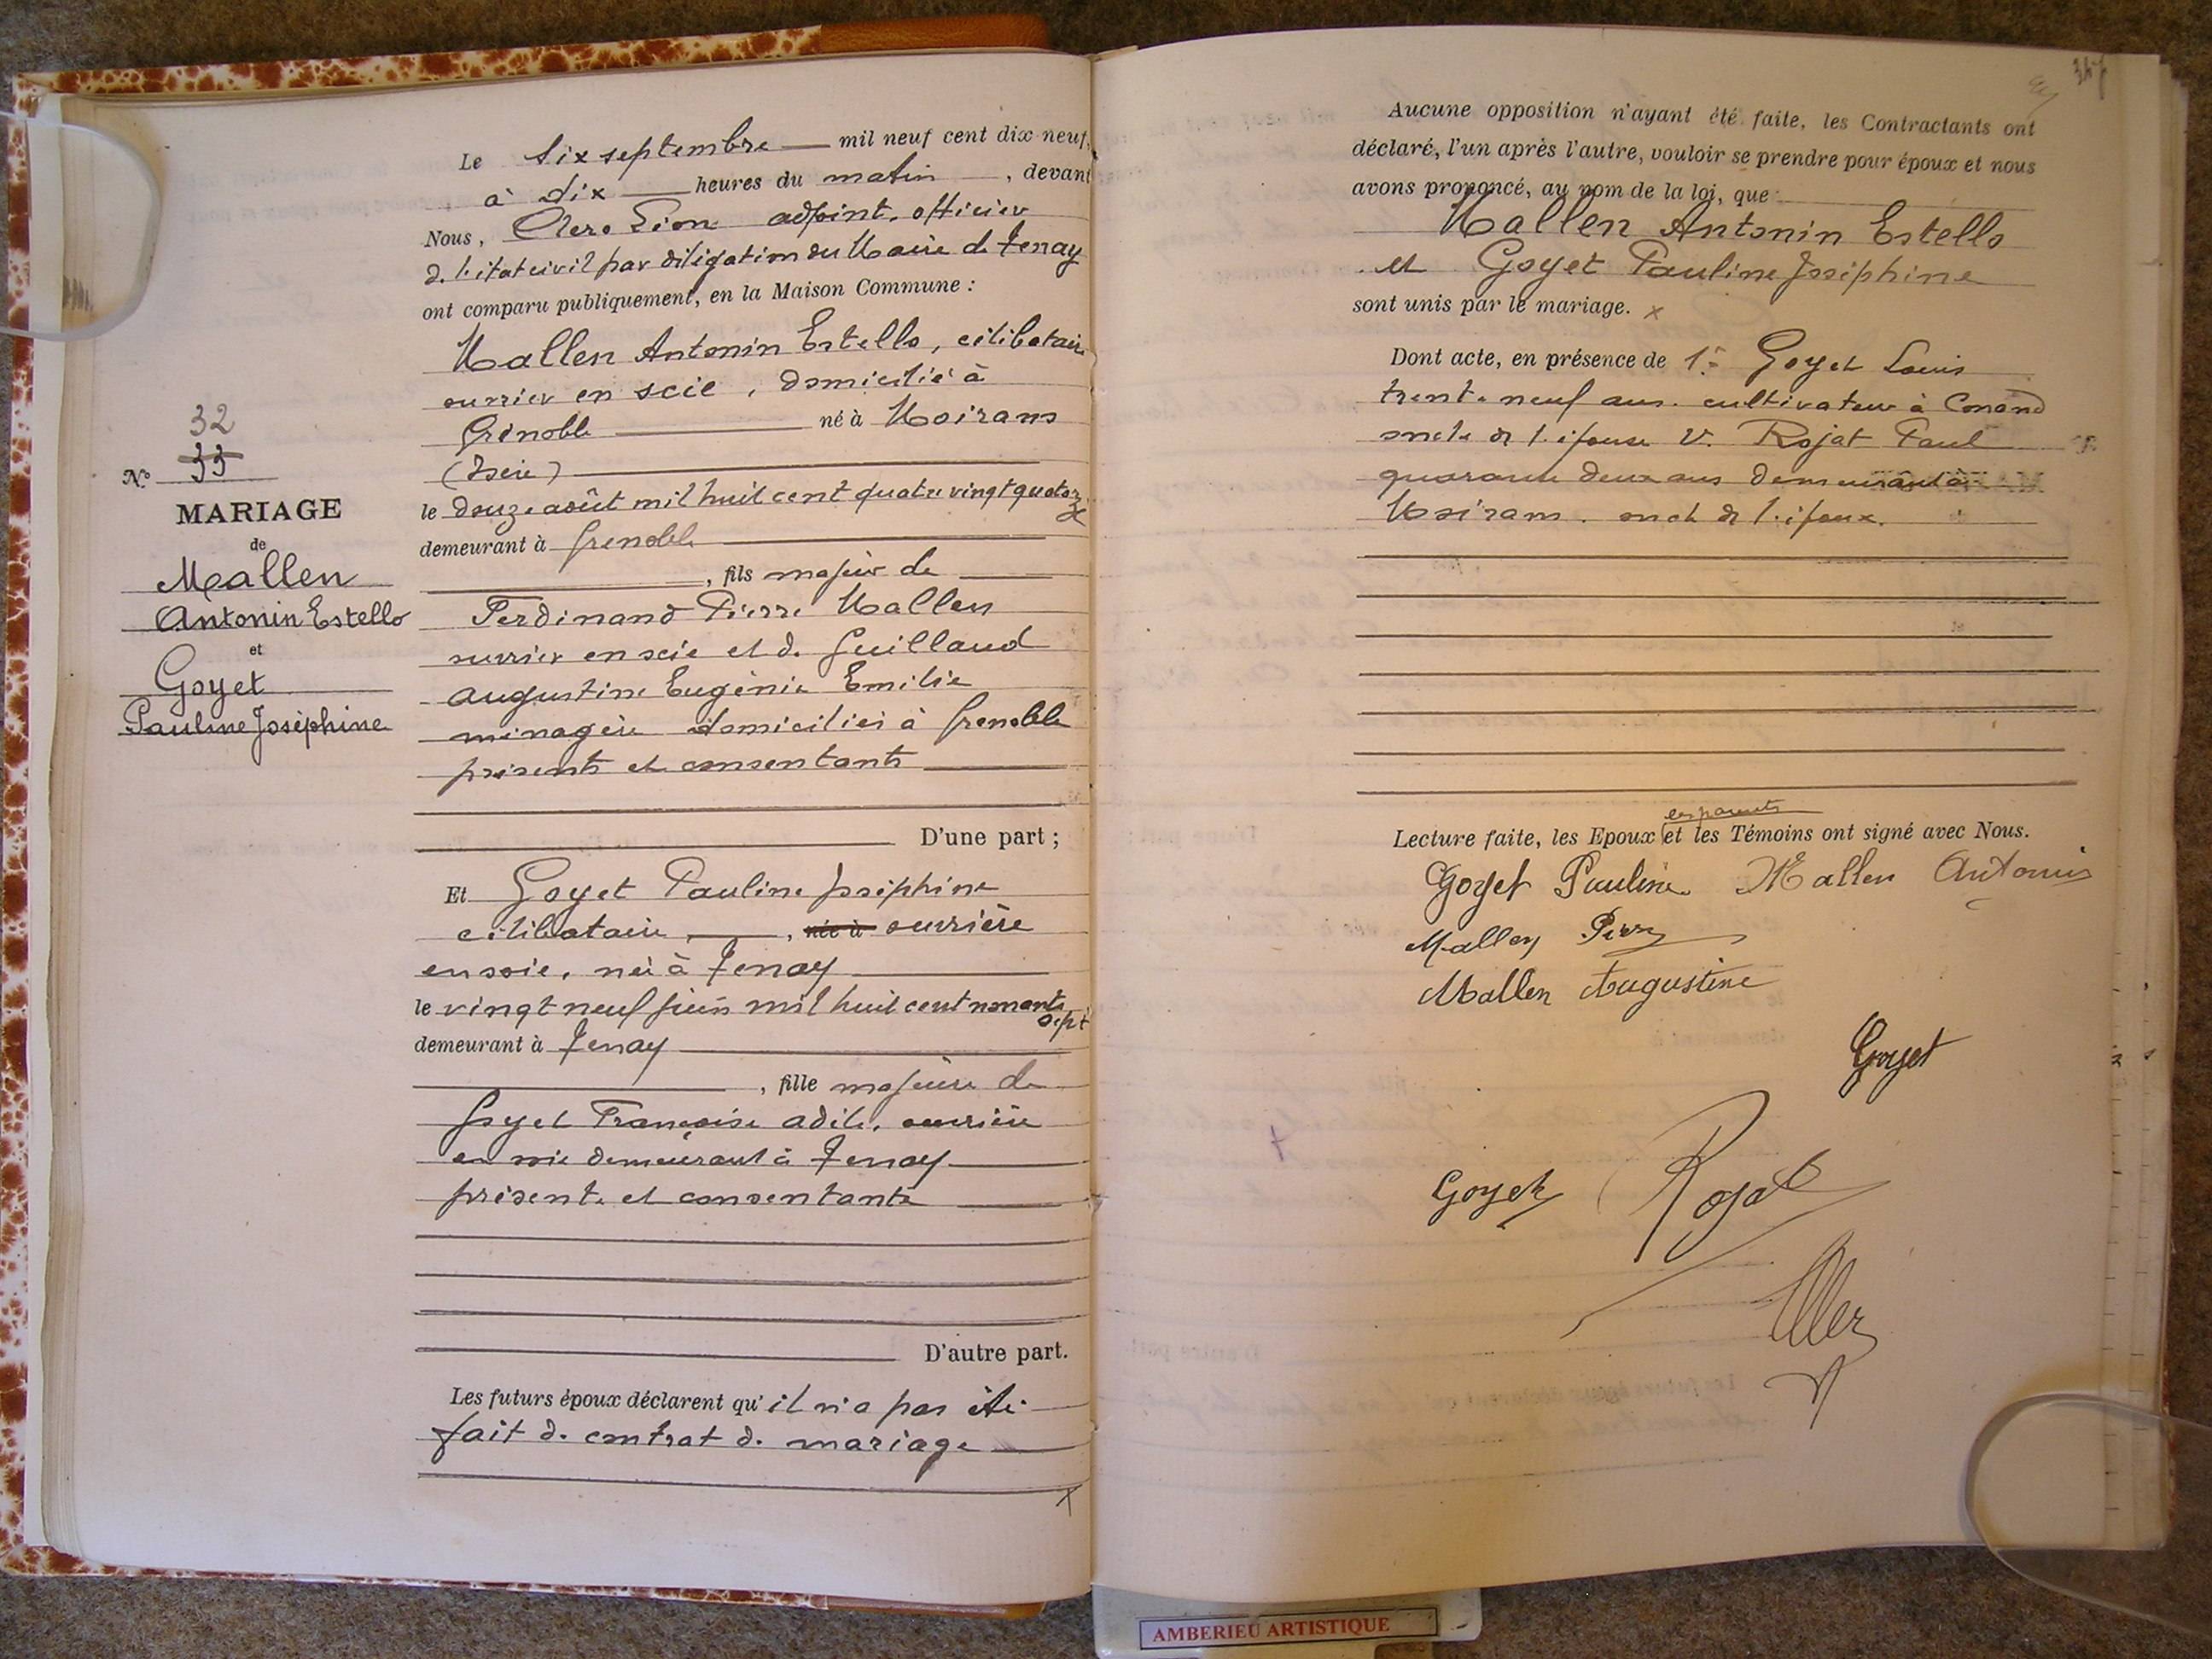 Le six septembre mil neuf cent dix neuf,
à dix heures du matin, devant
Nous, Clerc Léon adjoint, officier
de l'état civil par délégation du Maire de Tenay
ont comparu publiquement, en la Maison Commune :
Mallen Antonin Estello, célibataire
ouvrier en soie, domicilié à
Grenoble né à Moirans
(Isère)
le douze août mil huit cent quatre vingt quatorze
demeurant à Grenoble
, fils majeur de
Ferdinand Pierre Mallen
ouvrier en soie et de Guillaud
Augustine Eugénie Emilie
ménagère domiciliés à Grenoble
présents et consentants
D'une part ;
Et Goyet Pauline Joséphine
célibataire, , née à ouvrière
en soie, née à Tenay
le vingt neuf juin mil huit cent nonante sept
demeurant à Tenay
, fille majeure de
Goyet Françoise Adèle, ouvrière
en soie demeurant à Tenay
présente et consentante
D'autre part.
Les futurs époux déclarent qu'il n'a pas été
fait de contrat de mariage
32
N° 33
MARIAGE
de
Mallen
Antonin Estello
et
Goyet
Pauline Joséphine
Aucune opposition n'ayant été faite, les Contractants ont
déclaré, l'un après l'autre, vouloir se prendre pour époux et nous
avons prononcé, au nom de la loi, que
Mallen Antonin Estello
et Goyet Pauline Joséphine
sont unis par le mariage. x
Dont acte, en présence de 1.° Goyet Louis
trente neuf ans. cultivateur à Conand
oncle de l'épouse 2. Rojat Paul
quarante deux ans demeurant à
Moirans. oncle de l'époux.
les parents
Lecture faite, les Epoux et les Témoins ont signé avec Nous.
Goyet Pauline Mallen Antonin
Mallen Pierre
Mallen Augustine
Goyet
Goyet Rojat
AMBERIEU ARTISTIQUE